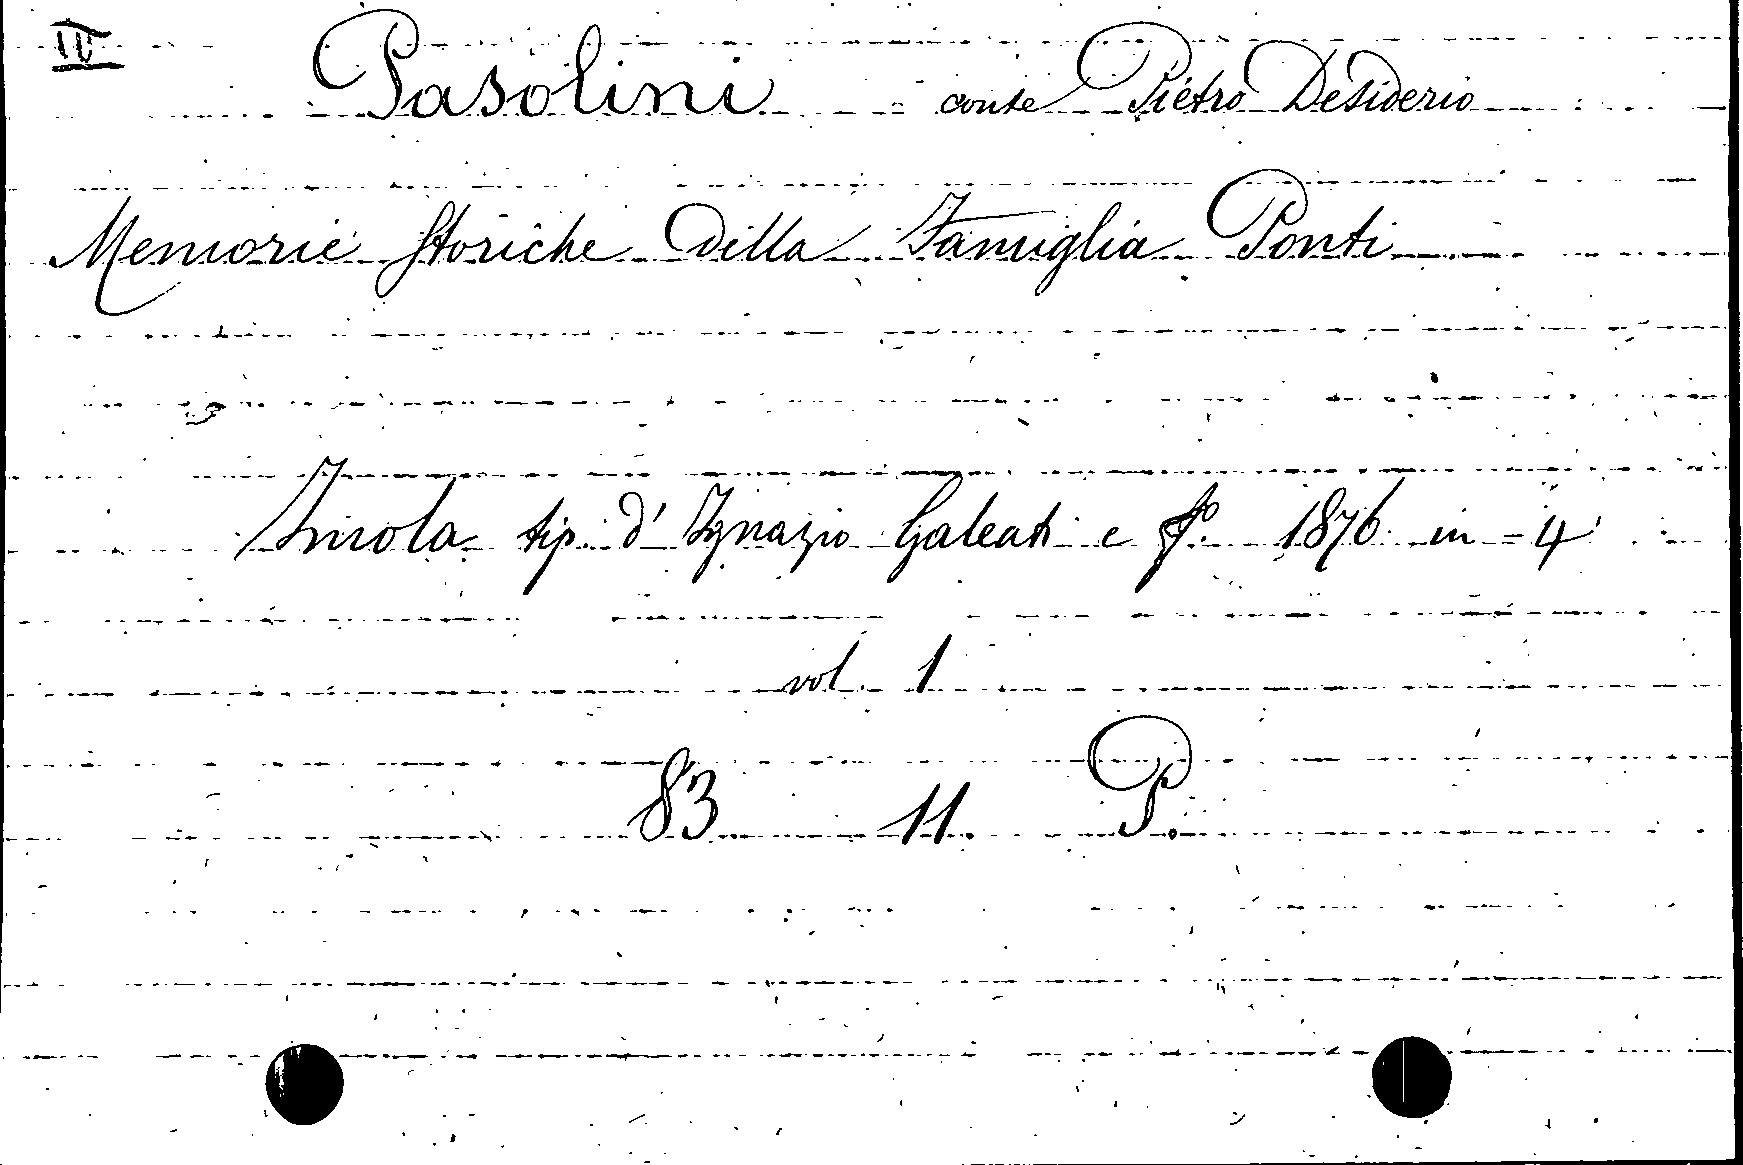 IV
Pasolini conte Pietro Desiderio
Memorie storiche della Famiglia Ponti
Imola tip. d' Ignazio Galeati e f.o 1876 in - 4
vol. 1
83 11. P.